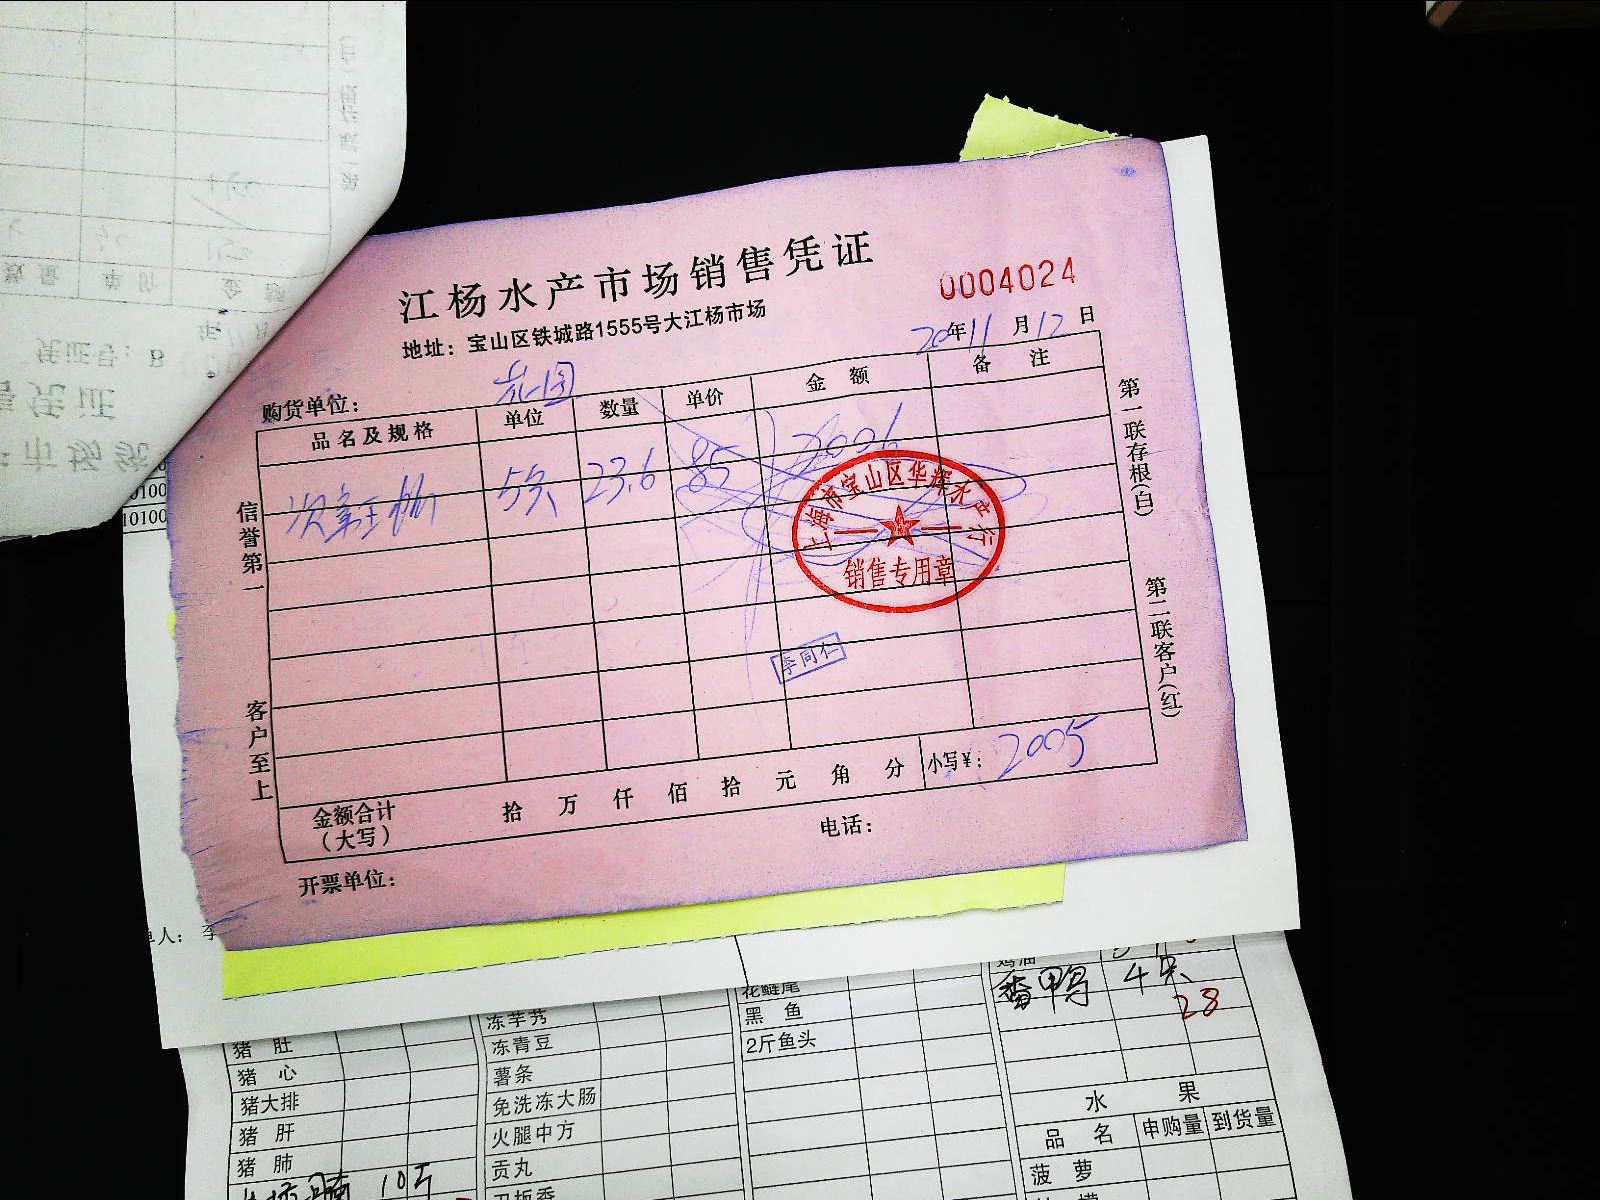 江杨水产市场销售凭证
0004024
地址：宝山区铁城路1555号大江杨市场
20年11月12日
购货单位：
品名及规格 单位 数量 单价 金额 备注
5只 23.6 85 2006
信誉第一
客户至上
第一联存根(白)
第二联客户(红)
上海市宝山区华辉水产行
销售专用章
李同仁
金额合计
(大写)
拾 万 仟 佰 拾 元 角 分 小写¥: 2005
电话：
开票单位：
数量 单价 金额
凭证号：B
凭证
市场统
10100
10100
单人：李
猪肚
猪心
猪大排
猪肝
猪肺
10斤
冻芋艿
冻青豆
薯条
免洗冻大肠
火腿中方
贡丸
花鲢尾
黑鱼
2斤鱼头
鸡油
番鸭 4只
28
水果
品名 申购量 到货量
菠萝